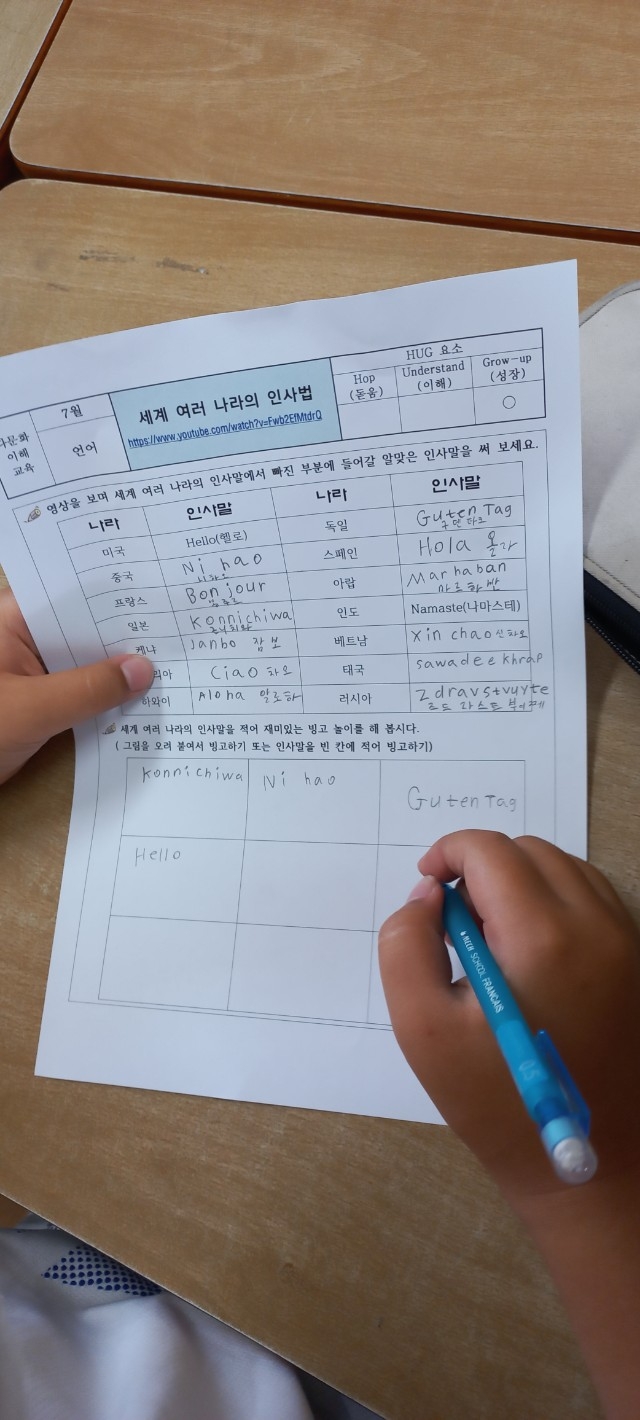 7월
세계 여러 나라의 인사법
HUG 요소
Hop
(돋움)
Understand
(이해)
Grow-up
(성장)
다문화
이해
교육
언어
https://www.youtube.com/watch?v=Fwb2EfMtdrQ
○
영상을 보며 세계 여러 나라의 인사말에서 빠진 부분에 들어갈 알맞은 인사말을 써 보세요.
나라 인사말 나라 인사말
미국 Hello(헬로) 독일 Guten Tag
중국 Ni hao 스페인 Hola 올라
프랑스 Bonjour 아랍 Marhaban
마르하반
일본 Konnichiwa 인도 Namaste(나마스테)
케냐 Janbo 잠보 베트남 Xin chao 신차오
리아 Ciao 차오 태국 sawadee khrap
하와이 Aloha 알로하 러시아 Zdravstvuyte
세계 여러 나라의 인사말을 적어 재미있는 빙고 놀이를 해 봅시다.
( 그림을 오려 붙여서 빙고하기 또는 인사말을 빈 칸에 적어 빙고하기)
Konnichiwa Ni hao Guten Tag
Hello
MICH SCHOOL FRANCAIS
0.5